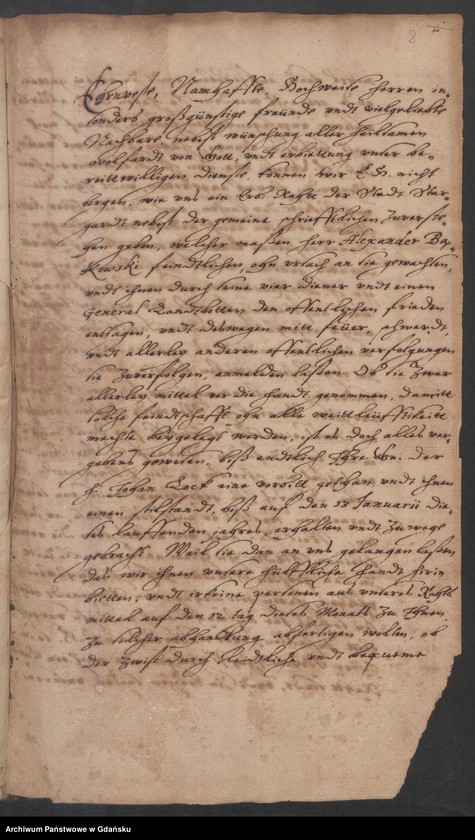 8
Ehrnveste, Namhaffte, Wolweise Herren in-
sonders großgünstige freunde undt vielgeliebte
Nachbarn nebest wünschung aller heilsamen
wolfardt von Gott, undt erbiettung unser be-
reittwilligen dienste, können wir E. H. nicht
bergen, wie uns ein Erb. Rahtt der Stadt Star-
gardt nebest der gemeine schriefftlichen zuverste-
hen geben, welcher maßen Herr Alexander Ba-
kowski feindtlichen, ohn ursach an sie gemachten,
undt ihnen durch seine vier diener undt einen
General Landtbotten den offentlichen frieden
entsagen, undt deswegen mitt feuer, schwerdt,
undt allerley anderen offentlichen verfolgungen
sie zuverfolgen, anmelden laßen. Ob sie zwar
allerley mittel vor die handt genommen, damitt
solche feindtschafft ohn alle weittleufftikeitt
mochte beygelegt werden, ist es doch alles ver-
gebens gewesen, biß endtlich Ihre Gn. der
H. Johan Lock eine vorbitt gethan undt ihnen
einen stilstandt, biß auf den 13 Januarii die-
ses lauffenden jahres, erhalten undt zuwege
gebracht. Weil sie den an uns gelangen laßen
das wir ihnen unsere hülffliche handt hirin
bietten, undt etliche personen aus unserm Rahts
mittel auf den 12 tag dieses Monats zu ihnen
zu solcher abhandlung abfertigen wolten, ob
der zwist durch freundtliche undt bequeme
Archiwum Państwowe w Gdańsku